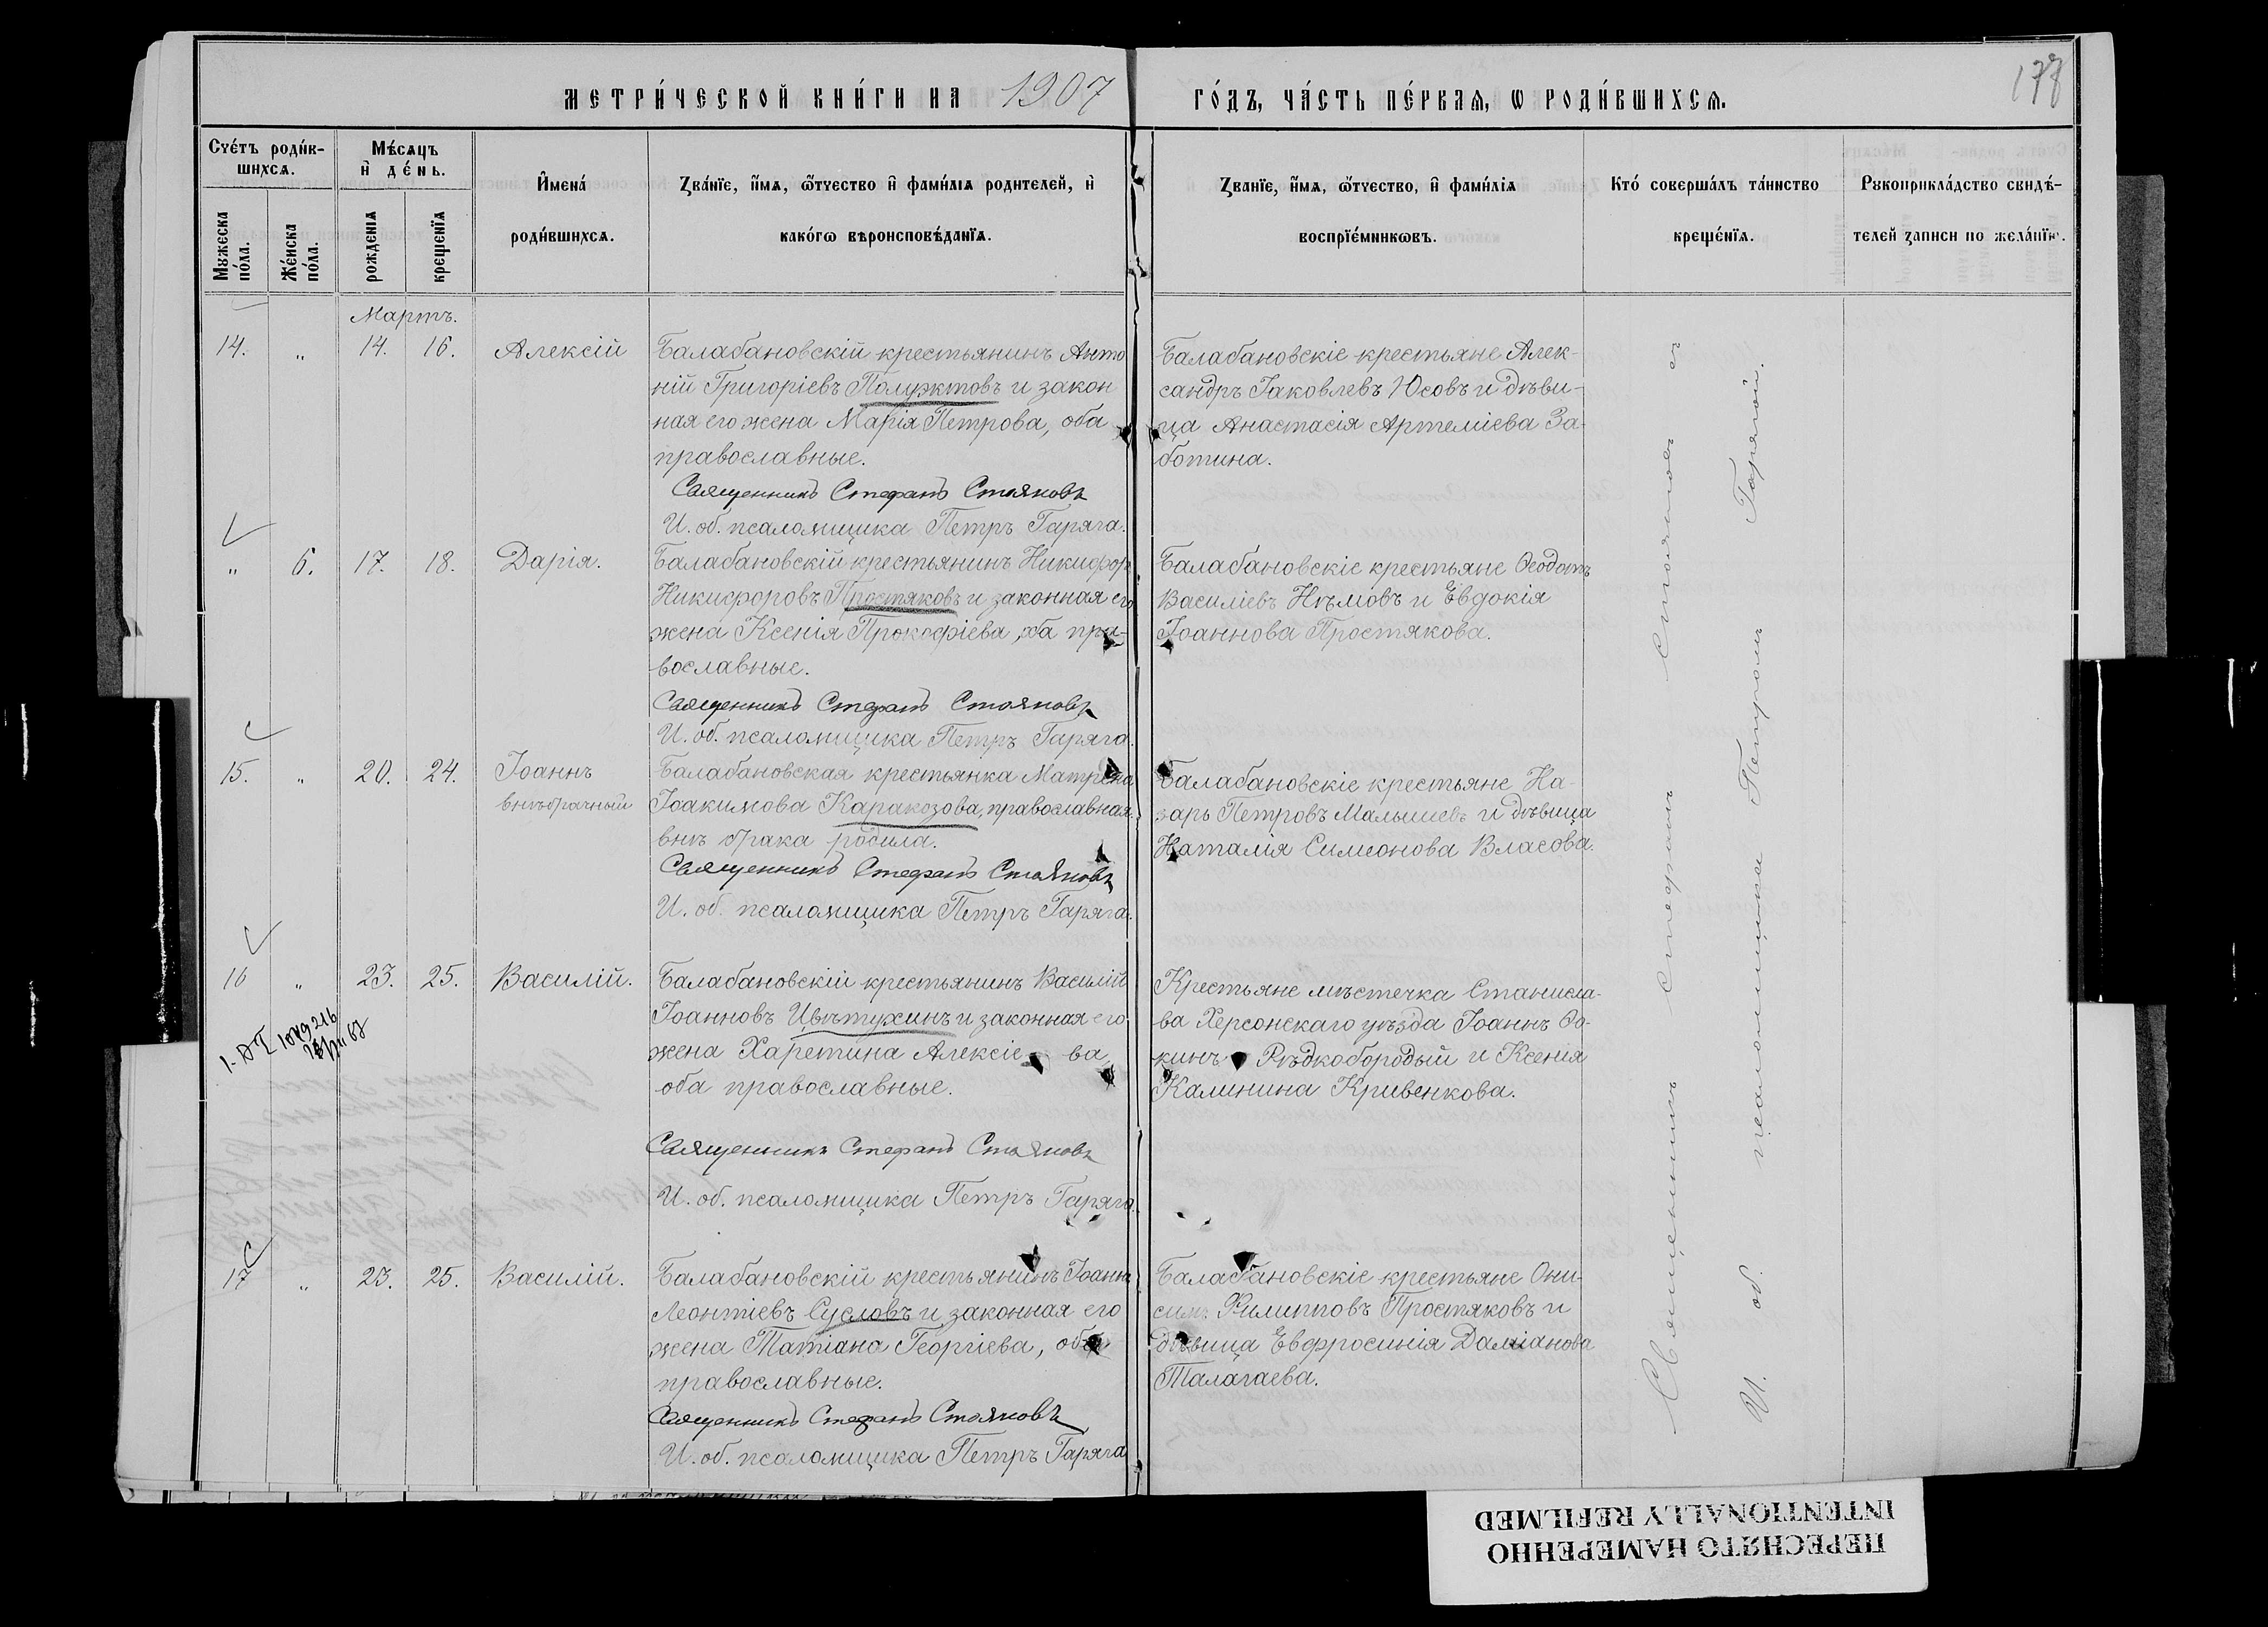 МЕТРИ́ЧЕСКОЙ КНИ́ГИ НА 1907
ГО́ДЪ, ЧА́СТЬ ПЕ́РВАѦ, Ѡ РОДИ́ВШИХСѦ.
177
Счéтъ роди́в-
шихсѧ.
Мужеска
по́ла.
Же́нска
по́ла.
Мѣ́сѧцъ
и҆ де́нь.
рожденїѧ
крещенїѧ
И҆мена́
роди́вшихсѧ.
Зва́нїе, и҆́мѧ, ѻ҆́тчество и҆ фами́лїѧ родителей, и҆
како́гѡ вѣроисповѣ́данїѧ.
Званїе, и҆́мѧ, ѻ҆́тчество, и҆ фами́лїѧ
воспрїе́мникѡвъ.
Кто́ соверша́лъ та́инство
креще́нїѧ.
Рꙋкоприкла́дство свидѣ́-
телей записи по жела́нїю.
Мартъ.
14. „ 14. 16. Алексій
Балабановскій крестьянинъ Анто
ній Григоріевъ Полуэктовъ и закон
ная его жена Марія Петрова, оба
православные.
Священникъ Стефанъ Стояновъ
И. об. псаломщика Петръ Гаряга.
Балабановскіе крестьяне Алек-
сандръ Іаковлевъ Юсовъ и дѣви-
ца Анастасія Артеміева За-
ботина.
„ 6. 17. 18. Дарія.
Балабановскій крестьянинъ Никифоръ
Никифоровъ Простяковъ и законная его
жена Ксенія Прокофіева, оба пра-
вославные.
Священникъ Стефанъ Стояновъ
И. об. псаломщика Петръ Гаряга.
Балабановскіе крестьяне Ѳеодотъ
Василіевъ Нѣмовъ и Евдокія
Іоаннова Простякова.
15. „ 20. 24. Іоаннъ
внѣбрачный
Балабановская крестьянка Матрена
Іоакимова Каракозова, православная
внѣ брака родила.
Священникъ Стефанъ Стояновъ
И. об. псаломщика Петръ Гаряга.
Балабановскіе крестьяне На-
зарь Петровъ Малышевъ и дѣвица
Наталія Симеонова Власова.
16 „ 23. 25. Василій.
Балабановскій крестьянинъ Василій
Іоанновъ Цвѣтухинъ и законная его
жена Харетина Алексіева
оба православные.
Священникъ Стефанъ Стояновъ
И. об. псаломщика Петръ Гаряга.
Крестьяне мѣстечка Станисла-
ва Херсонскаго уѣзда Іоаннъ Ѳо-
кинъ Рѣдкобородый и Ксенія
Калинина Кривенкова.
17 „ 23. 25. Василій.
Балабановскій крестьянинъ Іоаннъ
Леонтіевъ Сусловъ и законная его
жена Татіана Георгіева, оба
православные.
Священникъ Стефанъ Стояновъ
И. об. псаломщика Петръ Гаряга
Балабановскіе крестьяне Они-
симъ Филипповъ Простяковъ и
дѣвица Евфросинія Даміанова
Талагаева.
Священникъ Стефанъ Стояновъ съ
И. об. псаломщика Петромъ Гарягой.
ПЕРЕСНЯТО НАМЕРЕННО
INTENTIONALLY REFILMED